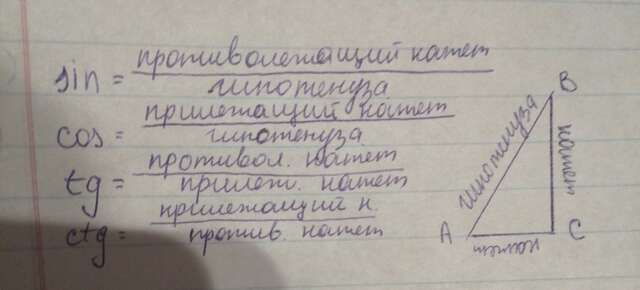 sin = противолежащий катет
гипотенуза
cos = прилежащий катет
гипотенуза
tg = противол. катет
прилеж. катет
ctg = прилежащий к.
против. катет
B
гипотенуза
катет
A
катет
C